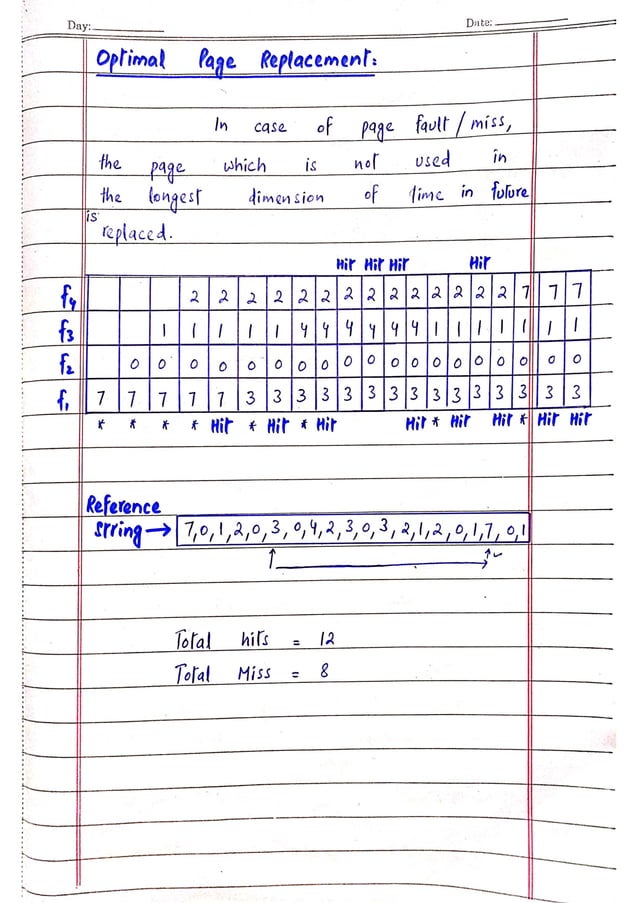 Day: Date:
Optimal Page Replacement:
In case of page fault / miss,
the page which is not used in
the longest dimension of time in future
is
replaced.
Hit Hit Hit Hit
f4 2 2 2 2 2 2 2 2 2 2 2 2 2 2 7 7 7
f3 1 1 1 1 1 4 4 4 4 4 4 1 1 1 1 1 1 1
f2 0 0 0 0 0 0 0 0 0 0 0 0 0 0 0 0 0 0 0
f1 7 7 7 7 7 3 3 3 3 3 3 3 3 3 3 3 3 3 3 3
* * * * Hit * Hit * Hit Hit * Hit Hit * Hit Hit
Reference
String → 7,0,1,2,0,3,0,4,2,3,0,3,2,1,2,0,1,7,0,1
Total hits = 12
Total Miss = 8